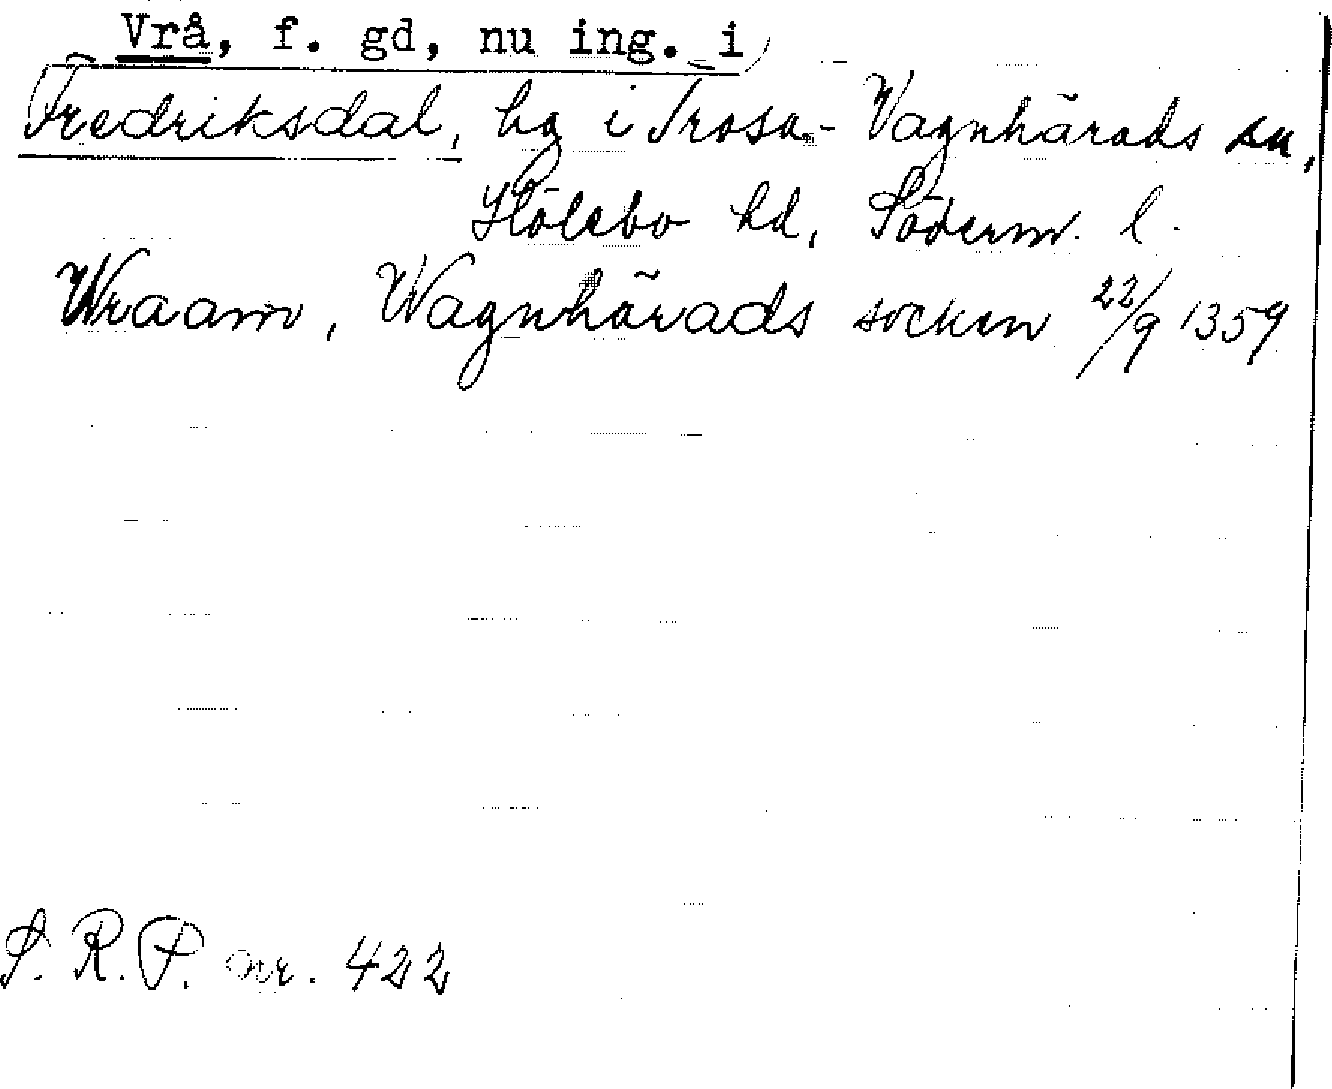 Vrå, f. gd, nu ing. i
Fredriksdal, hg i Trosa-Vagnhärads sn,
Hölebo hd, Söderm. l.
Wraam, Wagnhärads socken 22/9 1359
S. R. P. nr. 422